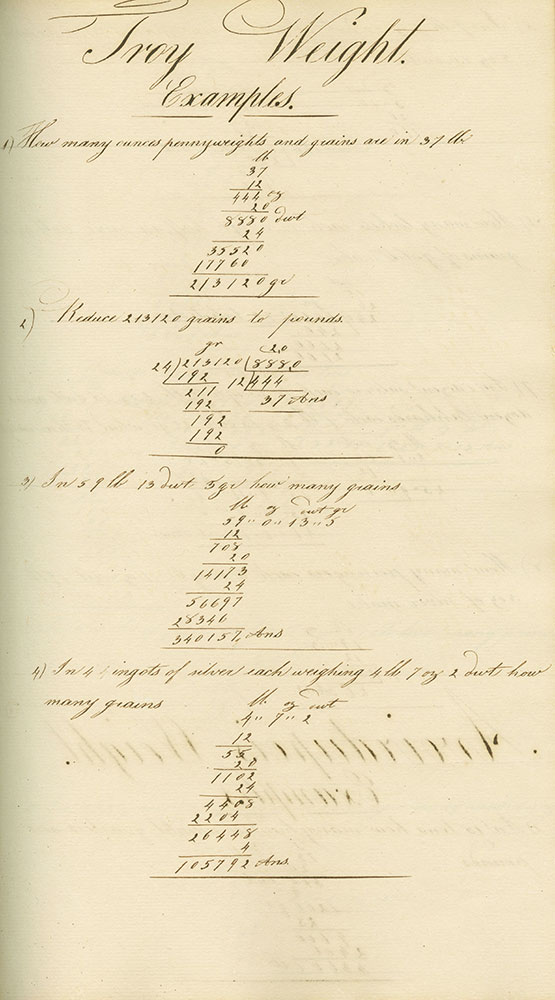 Troy Weight.
Examples.
1) How many ounces pennyweights and grains are in 37 lb
lb
37
12
444 oz
20
8880 dwt
24
35520
17760
213120 gr
2) Reduce 213120 grains to pounds.
gr 20
24)213120(8880
192 12)444
211 37 Ans
192
192
192
0
3) In 59 lb 13 dwt 5gr how many grains
lb oz dwt gr
59 " 0 " 13 " 5
12
708
20
14173
24
56697
28346
340157, Ans
4) In 4 ingots of silver each weighing 4 lb 7 oz 2 dwt how
many grains
lb oz dwt
4 " 7 " 2
12
55
20
1102
24
4408
2204
26448
4
105792 Ans